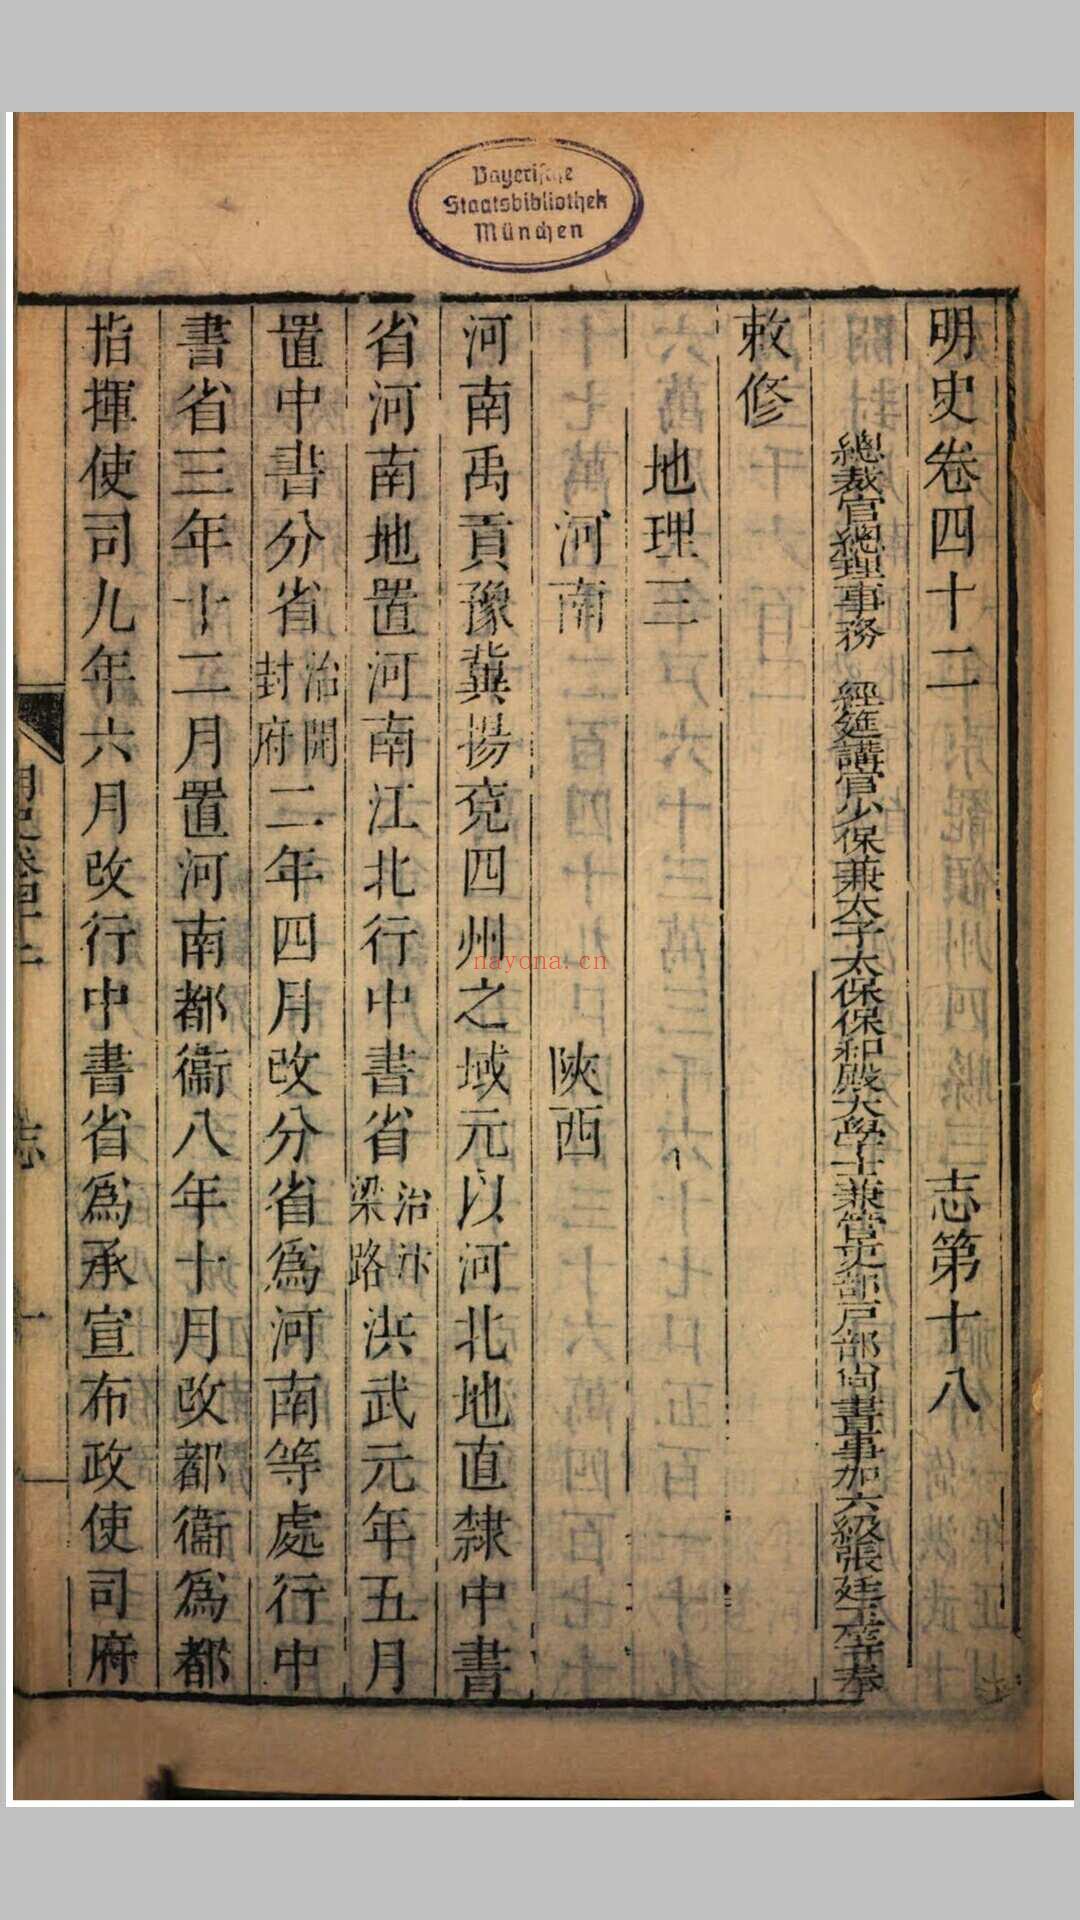 Bayerische
Staatsbibliothek
München
明史卷四十二 志第十八
總裁官總理事務 經筵講官少保兼太子太保保和殿大學士兼管吏部戶部尚書事加六級張廷玉等奉
敕修
地理三
河南 陝西
河南禹貢豫冀揚兗四州之域元以河北地直隸中書
省河南地置河南江北行中書省治汴梁路洪武元年五月
置中書分省治開封府二年四月改分省爲河南等處行中
書省三年十二月置河南都衞八年十月改都衞爲都
指揮使司九年六月改行中書省爲承宣布政使司府
明史卷四十二 志 一
nayona.cn